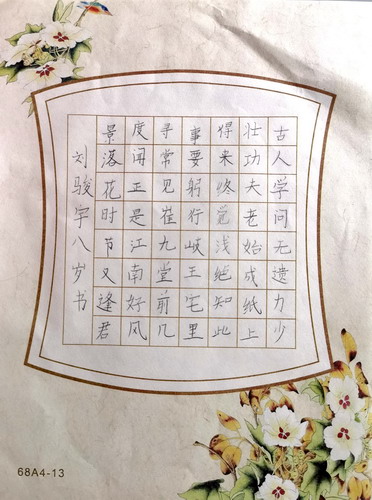 古人学问无遗力少
壮功夫老始成纸上
得来终觉浅绝知此
事要躬行岐王宅里
寻常见崔九堂前几
度闻正是江南好风
景落花时节又逢君
刘骏宇八岁书
68A4-13